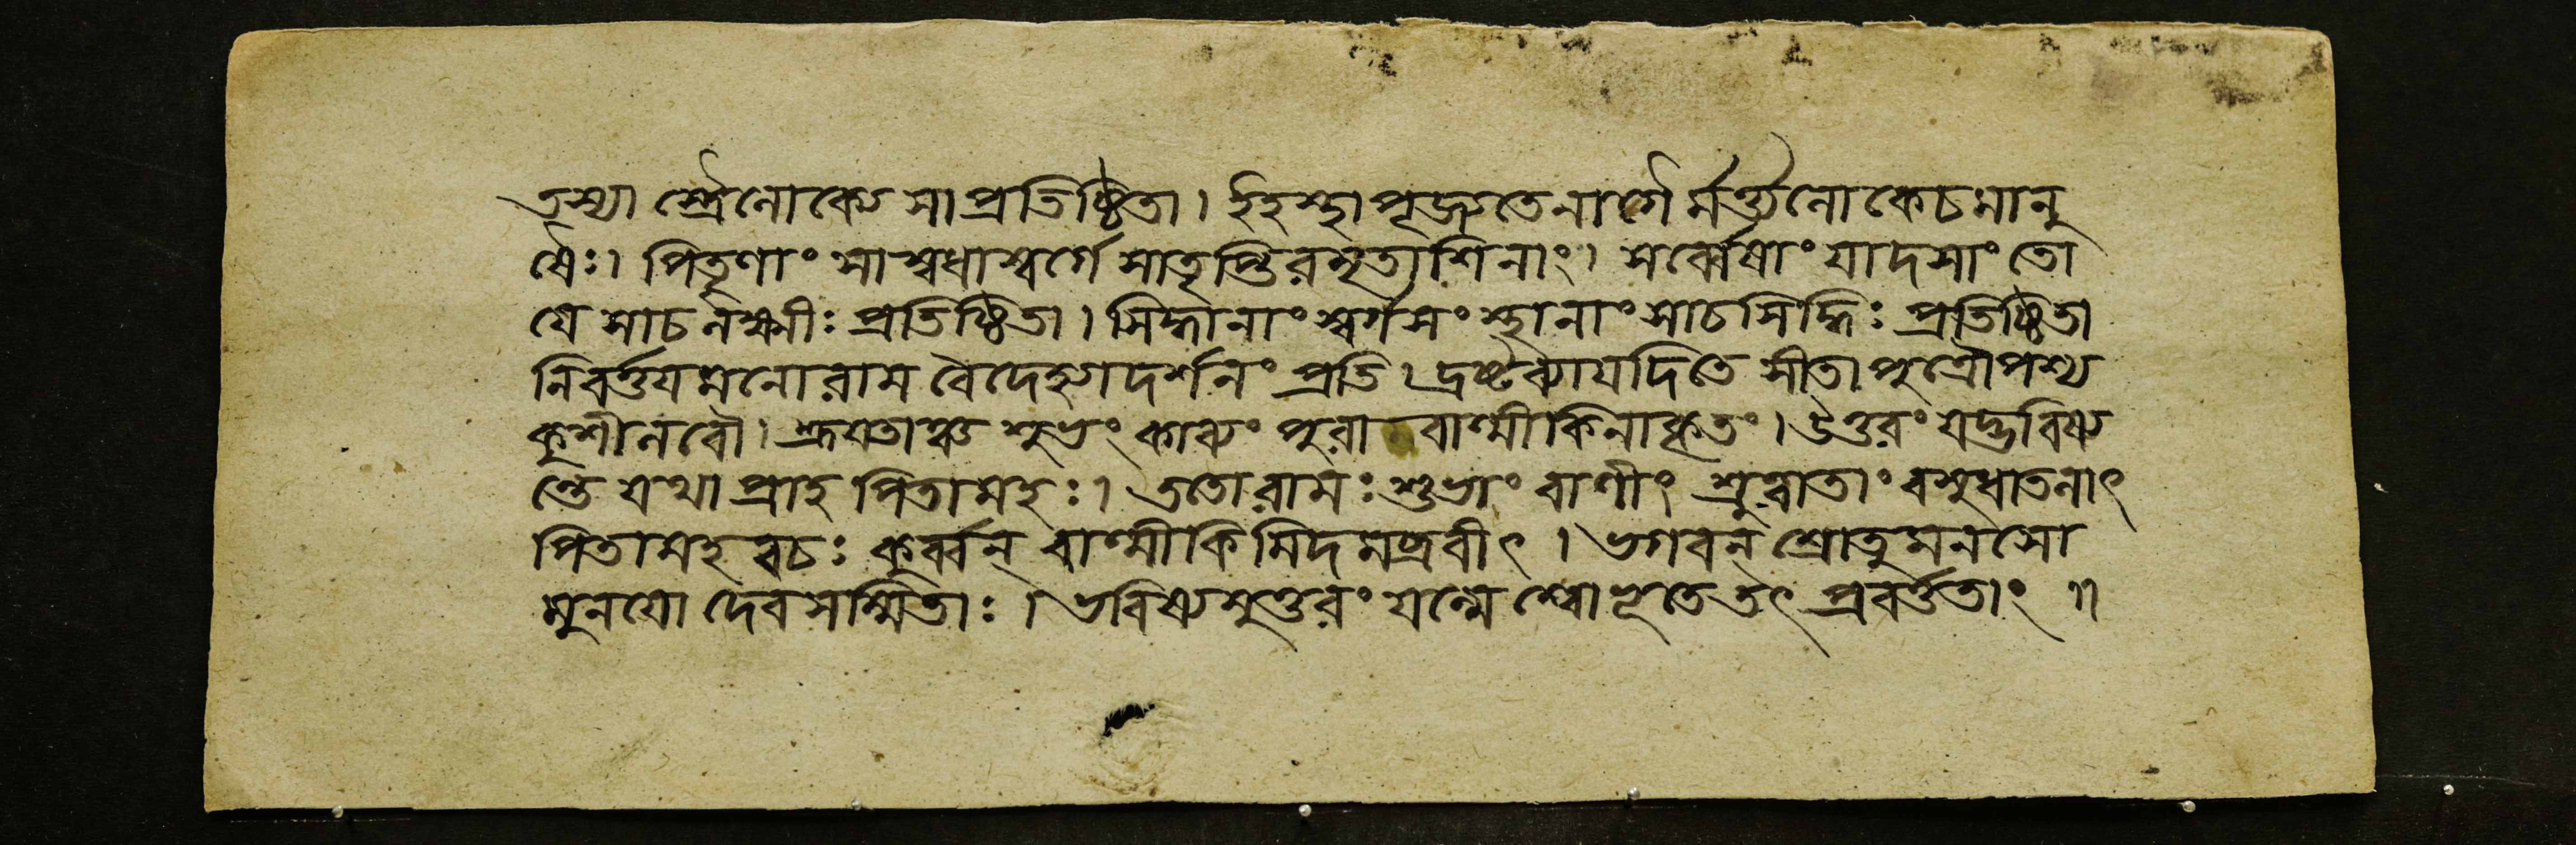 তস্যা স্ত্রৈলোক্যে সা প্রতিষ্ঠিতা। ইহস্থা পূজ্যতে নাগৈ র্মর্ত্যলোকে চ মানু
ষৈঃ। পিতৄণাং সা স্বধা স্বর্গে সা তৃপ্তিরমৃতাশিনাং। সর্ব্বেষাং যাদসাং তো
যে সা চ লক্ষ্মীঃ প্রতিষ্ঠিতা। সিদ্ধানাং স্বর্গসংস্থানাং সা চ সিদ্ধিঃ প্রতিষ্ঠিতা
নিবর্ত্তয মনো রাম বৈদেহ্যা দর্শনং প্রতি। দ্রষ্টব্যা যদি তে সীতা পুত্রৌ পশ্য
কুশীলবৌ। শ্রূযতাঞ্চ শুভং কাব্যং পুরা বাল্মীকিনা কৃতং। উত্তরং যদ্ভবিষ্য
ন্তে যথা প্রাহ পিতামহঃ। ততো রামঃ শুভাং বাণীং শ্রুত্বা তাং বসুধাতলাৎ
পিতামহ বচঃ কুর্ব্বন্ বাল্মীকিমিদমব্রবীৎ। ভগবন্ শ্রোতুমনসো
মুনযো দেবসম্মিতাঃ। ভবিষ্যমুত্তরং যন্মে শ্বোভূতে তৎ প্রবর্ত্ততাং॥